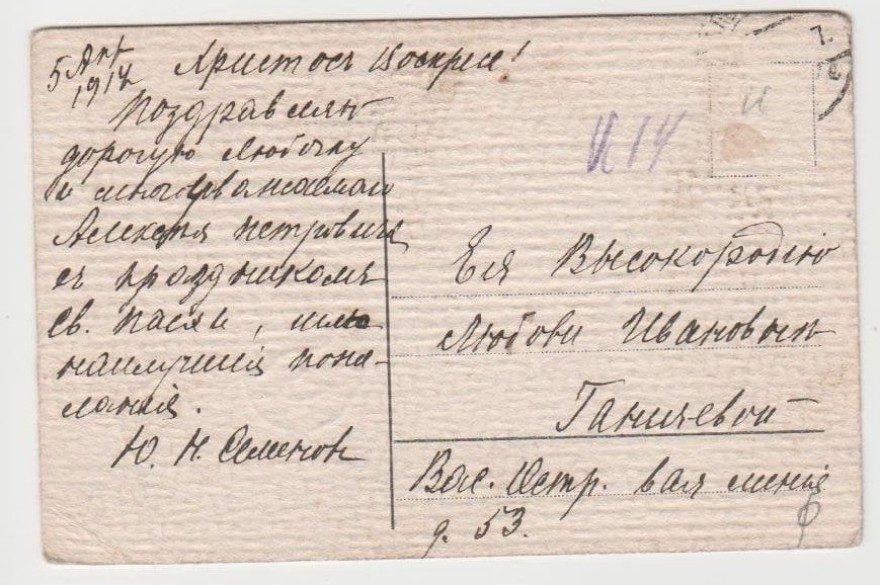 5 Апр
1914
Христосъ Воскресе!
Поздравляю
дорогую Любочку
и многоуважаемаго
Алексѣя Петровича
съ праздникомъ
Св. Пасхи, шлю
наилучшія поже-
ланія.
Ю. Н. Семеновъ
И 14
Ея Высокородію
Любови Ивановнѣ
Ганичевой
Вас. Остр. 8ая линія
д. 53.
7.